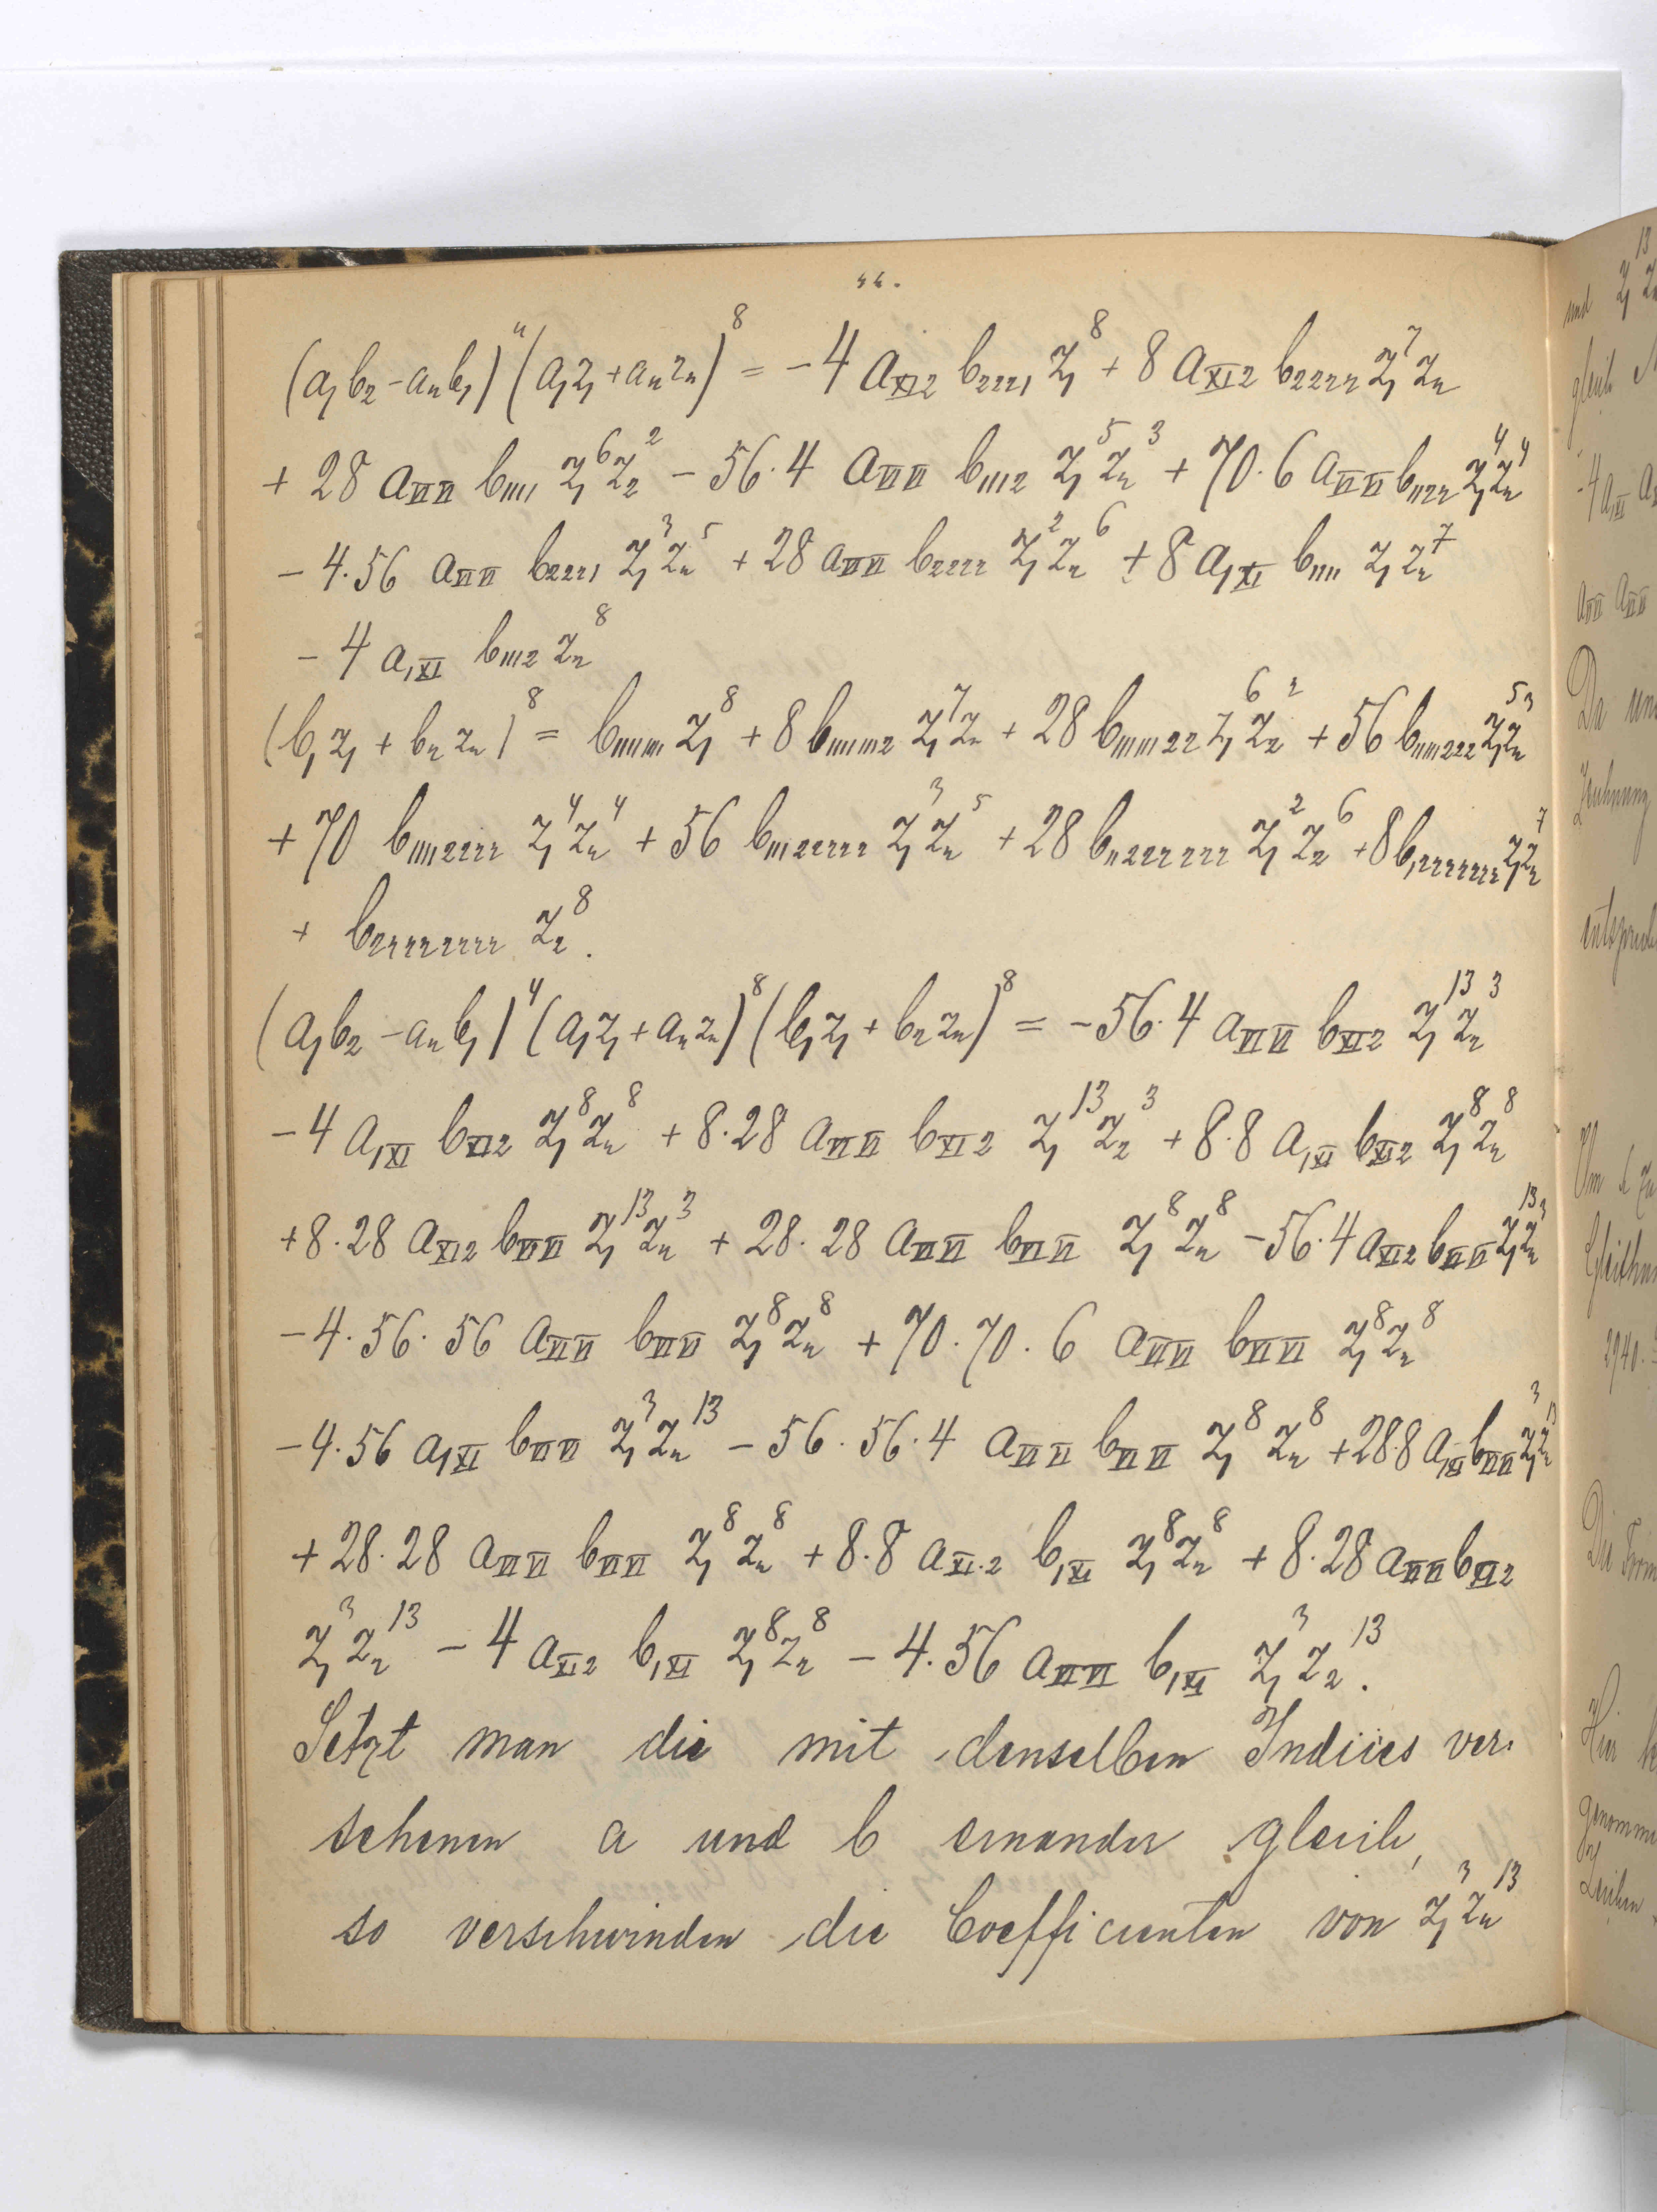 44.
(a₁b₂ - a₂b₁)⁴ (a₁z₁ + a₂z₂)⁸ = - 4 a_XI2 b₂₂₂₁ z₁⁸ + 8 a_XI2 b₂₂₂₂ z₁⁷z₂
+ 28 a_VIVI b₁₁₁₁ z₁⁶z₂² - 56·4 a_VIVI b₁₁₁₂ z₁⁵z₂³ + 70·6 a_VIVI b₁₁₂₂ z₁⁴z₂⁴
- 4·56 a_VIVI b₂₂₂₁ z₁³z₂⁵ + 28 a_VIVI b₂₂₂₂ z₁²z₂⁶ + 8 a_1XI b₁₁₁₁ z₁z₂⁷
- 4 a_1XI b₁₁₁₂ z₂⁸
(b₁z₁ + b₂z₂)⁸ = b₁₁₁₁₁₁₁₁ z₁⁸ + 8 b₁₁₁₁₁₁₁₂ z₁⁷z₂ + 28 b₁₁₁₁₁₁₂₂ z₁⁶z₂² + 56 b₁₁₁₁₁₂₂₂ z₁⁵z₂³
+ 70 b₁₁₁₁₂₂₂₂ z₁⁴z₂⁴ + 56 b₁₁₁₂₂₂₂₂ z₁³z₂⁵ + 28 b₁₁₂₂₂₂₂₂ z₁²z₂⁶ + 8 b₁₂₂₂₂₂₂₂ z₁z₂⁷
+ b₂₂₂₂₂₂₂₂ z₂⁸.
(a₁b₂ - a₂b₁)⁴ (a₁z₁ + a₂z₂)⁸ (b₁z₁ + b₂z₂)⁸ = - 56·4 a_VIVI b_XI2 z₁¹³z₂³
- 4 a_1XI b_XI2 z₁⁸z₂⁸ + 8·28 a_VIVI b_XI2 z₁¹³z₂³ + 8·8 a_1XI b_XI2 z₁⁸z₂⁸
+ 8·28 a_XI2 b_VIVI z₁¹³z₂³ + 28·28 a_VIVI b_VIVI z₁⁸z₂⁸ - 56·4 a_XI2 b_VIVI z₁¹³z₂³
- 4·56·56 a_VIVI b_VIVI z₁⁸z₂⁸ + 70·70·6 a_VIVI b_VIVI z₁⁸z₂⁸
- 4·56 a_1XI b_VIVI z₁³z₂¹³ - 56·56·4 a_VIVI b_VIVI z₁⁸z₂⁸ + 28·8 a_1XI b_VIVI z₁³z₂¹³
+ 28·28 a_VIVI b_VIVI z₁⁸z₂⁸ + 8·8 a_XI·2 b_1XI z₁⁸z₂⁸ + 8·28 a_VIVI b_XI2
z₁³z₂¹³ - 4 a_XI2 b_1XI z₁⁸z₂⁸ - 4·56 a_VIVI b_1XI z₁³z₂¹³.
Setzt man die mit denselben Indices ver-
sehenen a und b einander gleich,
so verschwinden die Coefficienten von z₁³z₂¹³